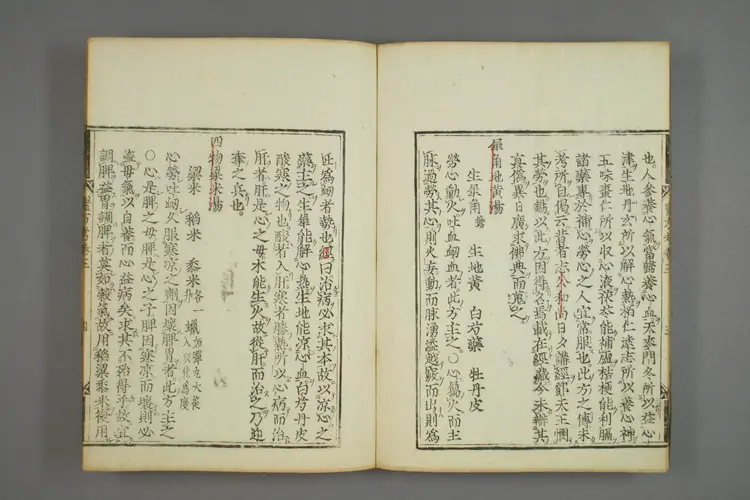 也。人參養心氣當歸養心血天麥門冬所以益心
津生地丹玄所以解心熱柏仁遠志所以養心神
五味棗仁所以收心液茯苓能補虛桔梗能利膈
諸藥專於補心勞心之人宜常服也此方之傳未
考所自偈云昔者志公和尚日夕講經鄧天王憫
其勞也錫以此方因得名焉載在經藏今未辯其
真僞異日廣求佛典而蒐之
犀角地黃湯
生犀角 生地黃 白芍藥 牡丹皮
勞心動火吐血衄血者此方主之〇心屬火而主
脉過勞其心則火妄動而脉湧溢越竅而出則爲
吐爲衄者熱也經曰治病必求其本故以凉心之
藥主之生犀能解心熱生地能凉心血白芍丹皮
酸寒之物也酸者入肝寒者勝熱所以心病而治
肝者肝是心之母木能生火故從肝而治之乃迎
奪之真也。
四物粱米湯
粱米 稻米 黍米各一升 蠟如彈丸大後入以化爲度
心勞吐衄久服寒凉之劑因壞脾胃者此方主之
〇心是脾之母脾是心之子脾因寒凉而壞則必
盜母氣以自養而心益病矣求其不殆得乎故宜
調脾益胃調脾者莫如穀氣故用稻粱黍米使用